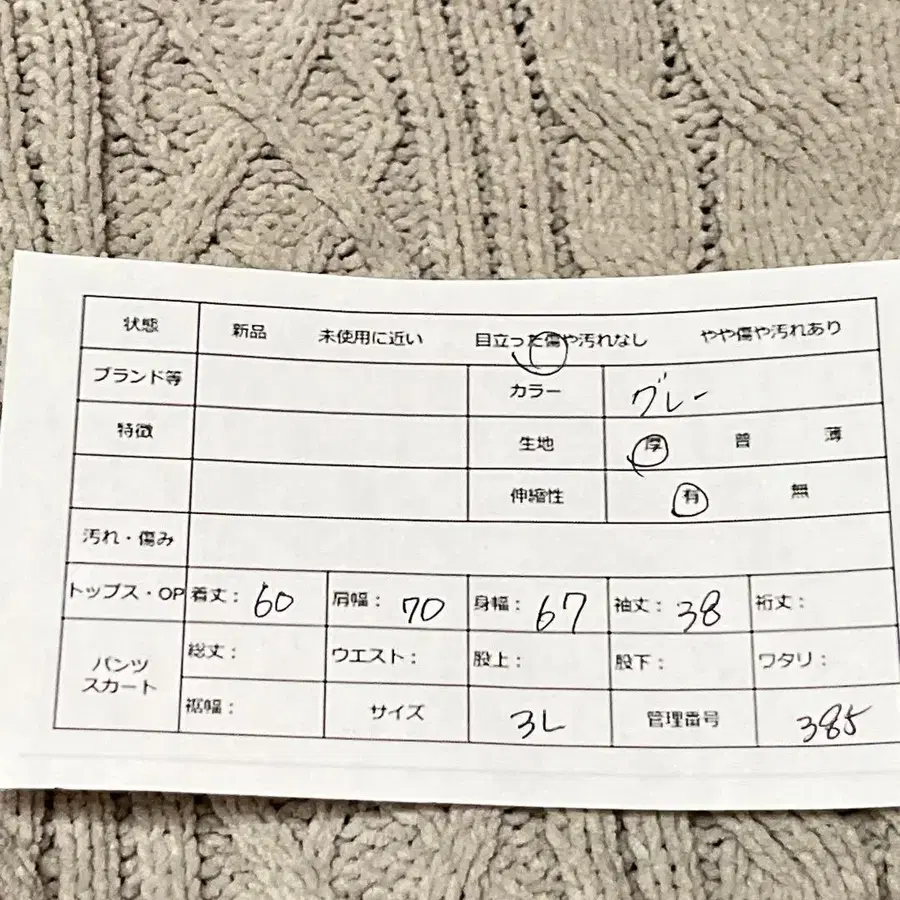 状態 新品 未使用に近い 目立った傷や汚れなし やや傷や汚れあり
ブランド等 カラー グレー
特徴 生地 厚 普 薄
伸縮性 有 無
汚れ・傷み
トップス・OP 着丈: 60 肩幅: 70 身幅: 67 袖丈: 38 裄丈:
パンツ スカート 総丈: ウエスト: 股上: 股下: ワタリ:
裾幅: サイズ 3L 管理番号 385